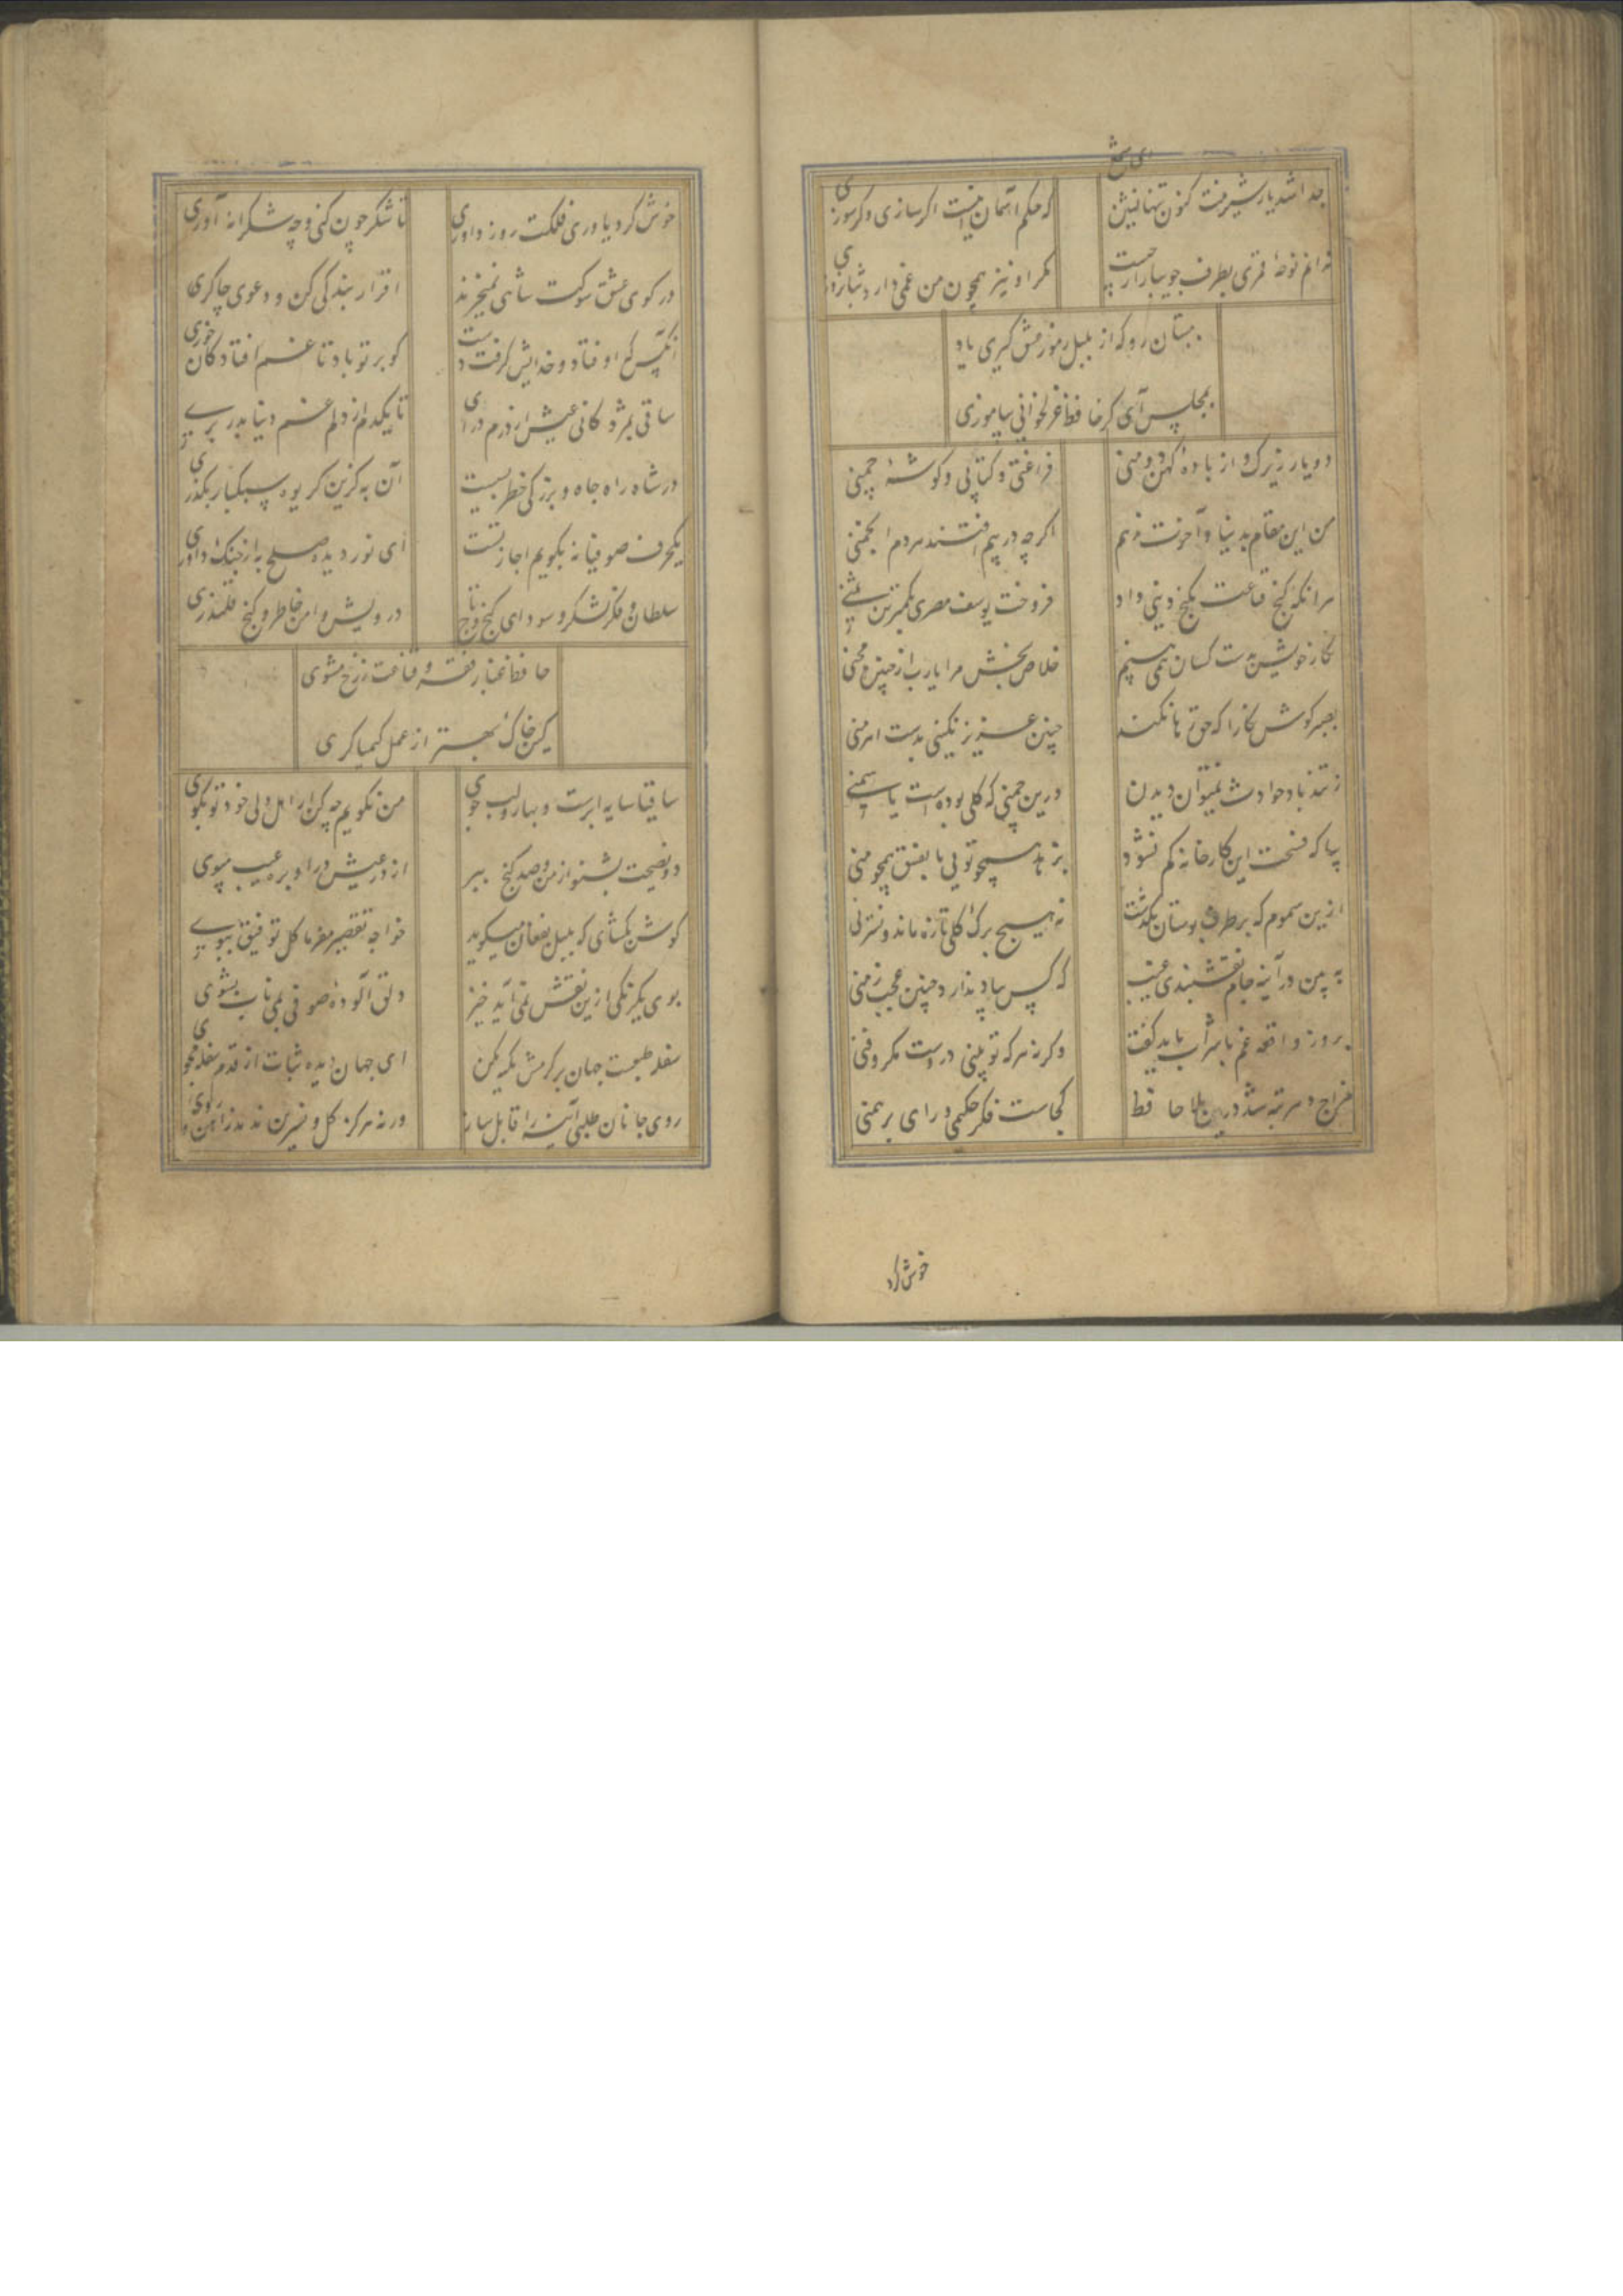 جدا شد یار شیرینت کنون تنها نشین
ای شمع
که حکم آسمان اینست اگر سازی و گر سوزی
ندانم نوحهٔ قمری بطرف جویباران چیست
مگر او نیز همچون من غمی دارد شبانروزی
ببستان رو که از بلبل رموز عشق گیری یاد
بمجلس آی کز حافظ غزلخوانی بیاموزی
دو یار زیرک و از بادهٔ کهن دو منی
فراغتی و کتابی و گوشهٔ چمنی
من این مقام بدنیا و آخرت ندهم
اگرچه در پیم افتند مردم انجمنی
هرانکه کنج قناعت بگنج دنیی داد
فروخت یوسف مصری بکمترین ثمنی
نگار خویش بدست کسان همی بینم
خلاص بخش مرا یا رب از چنین محنی
بصبر کوش که حق رها نکند
چنین عزیز نگینی بدست اهرمنی
ز تندباد حوادث نمیتوان دیدن
درین چمن که گلی بوده است یا سمنی
بیا که فسحت این کارخانه کم نشود
بزهد همچو تویی یا بفسق همچو منی
ازین سموم که بر طرف بوستان بگذشت
نه هیچ برگ گلی تازه ماند و نسترنی
ببین در آینه جام نقشبندی غیب
که کس بیاد ندارد چنین عجب زمنی
بروز واقعه غم با شراب باید گفت
وگرنه هر که تو بینی درست مکر و فنی
مزاج دهر تبه شد درین بلا حافظ
کجاست فکر حکیمی و رای برهمنی
خوش کرد
خوش کرد یاوری فلکت روز داوری
تا شکر چون کنی و چه شکرانه آوری
در کوی عشق شوکت شاهی نمیخرند
اقرار بندگی کن و دعوی چاکری
آنکس که اوفتاد و خدایش گرفت دست
گو بر تو باد تا غم افتادگان خوری
ساقی بمژدگانی عیش از درم درآی
تا یکدم از دلم غم دنیا بدر بری
در شاه راه جاه و بزرگی خطر بسیست
آن به کزین گریوه سبکبار بگذری
یکحرف صوفیانه بگویم اجازتست
ای نور دیده صلح به از جنگ و داوری
سلطان و فکر لشکر و سودای گنج و تاج
درویش و امن خاطر و کنج قلندری
حافظ غبار فقر و قناعت ز رخ مشوی
کین خاک بهتر از عمل کیمیاگری
ساقیا سایه ابرست و بهار و لب جوی
من نگویم چه کن ار اهل دلی خود تو بگوی
دو نصیحت بشنو از من و صد گنج ببر
از در عیش درآ و بره عیب مپوی
گوش بگشای که بلبل بفغان میگوید
خواجه تقصیر مفرما گل توفیق ببوی
بوی یکرنگی ازین نقش نمی آید خیز
دلق آلودهٔ صوفی بمی ناب بشوی
سفله طبعست جهان بر کرمش تکیه مکن
ای جهان دیده ثبات از قدم سفله مجوی
روی جانان طلبی آینه را قابل ساز
ورنه هرگز گل و نسرین ندمد ز آهن و روی